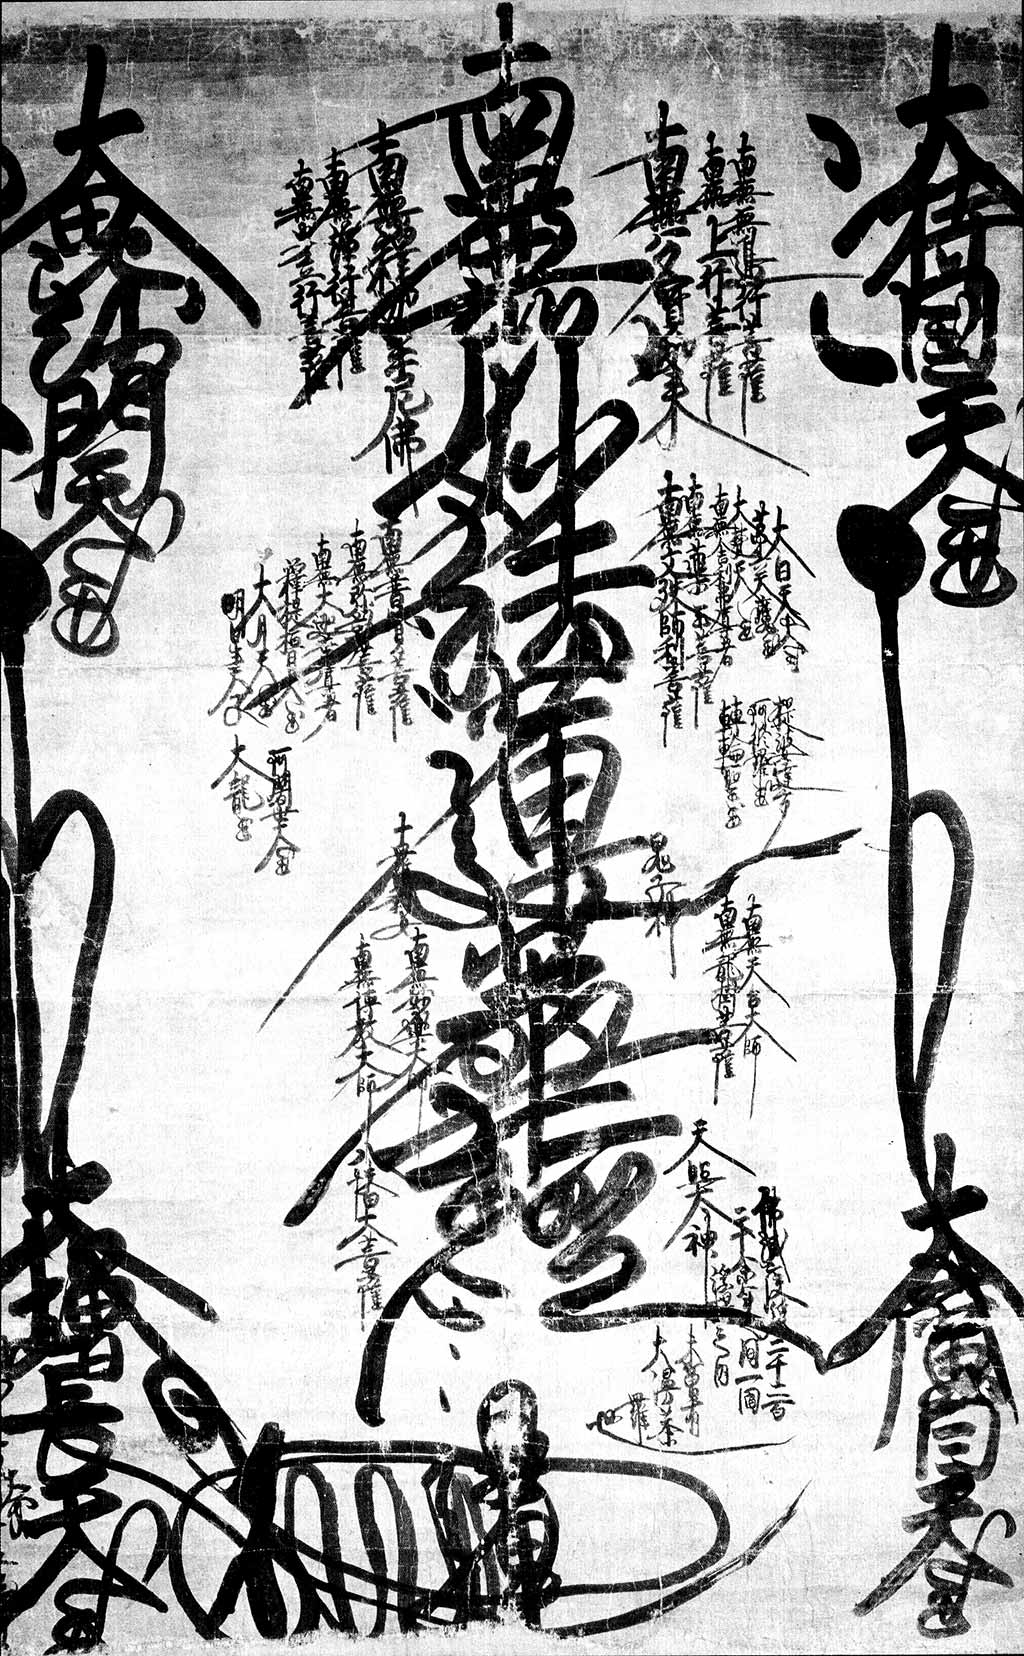 大持國天王
南無無邊行菩薩
南無上行菩薩
南無多寳如來
南無妙法蓮華經
南無釋迦牟尼佛
南無淨行菩薩
南無安立行菩薩
大毘沙門天王
大日天王
第六天魔王
大梵天王
南無舍利弗尊者
南無藥王菩薩
南無文殊師利菩薩
南無普賢菩薩
南無弥勒菩薩
南無大迦葉尊者
釋提桓因大王
大月天王
明星天子
提婆達多
阿修羅王
轉輪聖王
鬼子母神
十羅刹女
阿闍世大王
大龍王
南無天台大師
南無龍樹菩薩
南無妙樂大師
南無傳教大師
大廣目天王
天照大神
八幡大菩薩
大增長天王
佛滅度後二千二百
二十余年之間一閻
浮提之内
未曾有
大漫荼
羅
也
日蓮